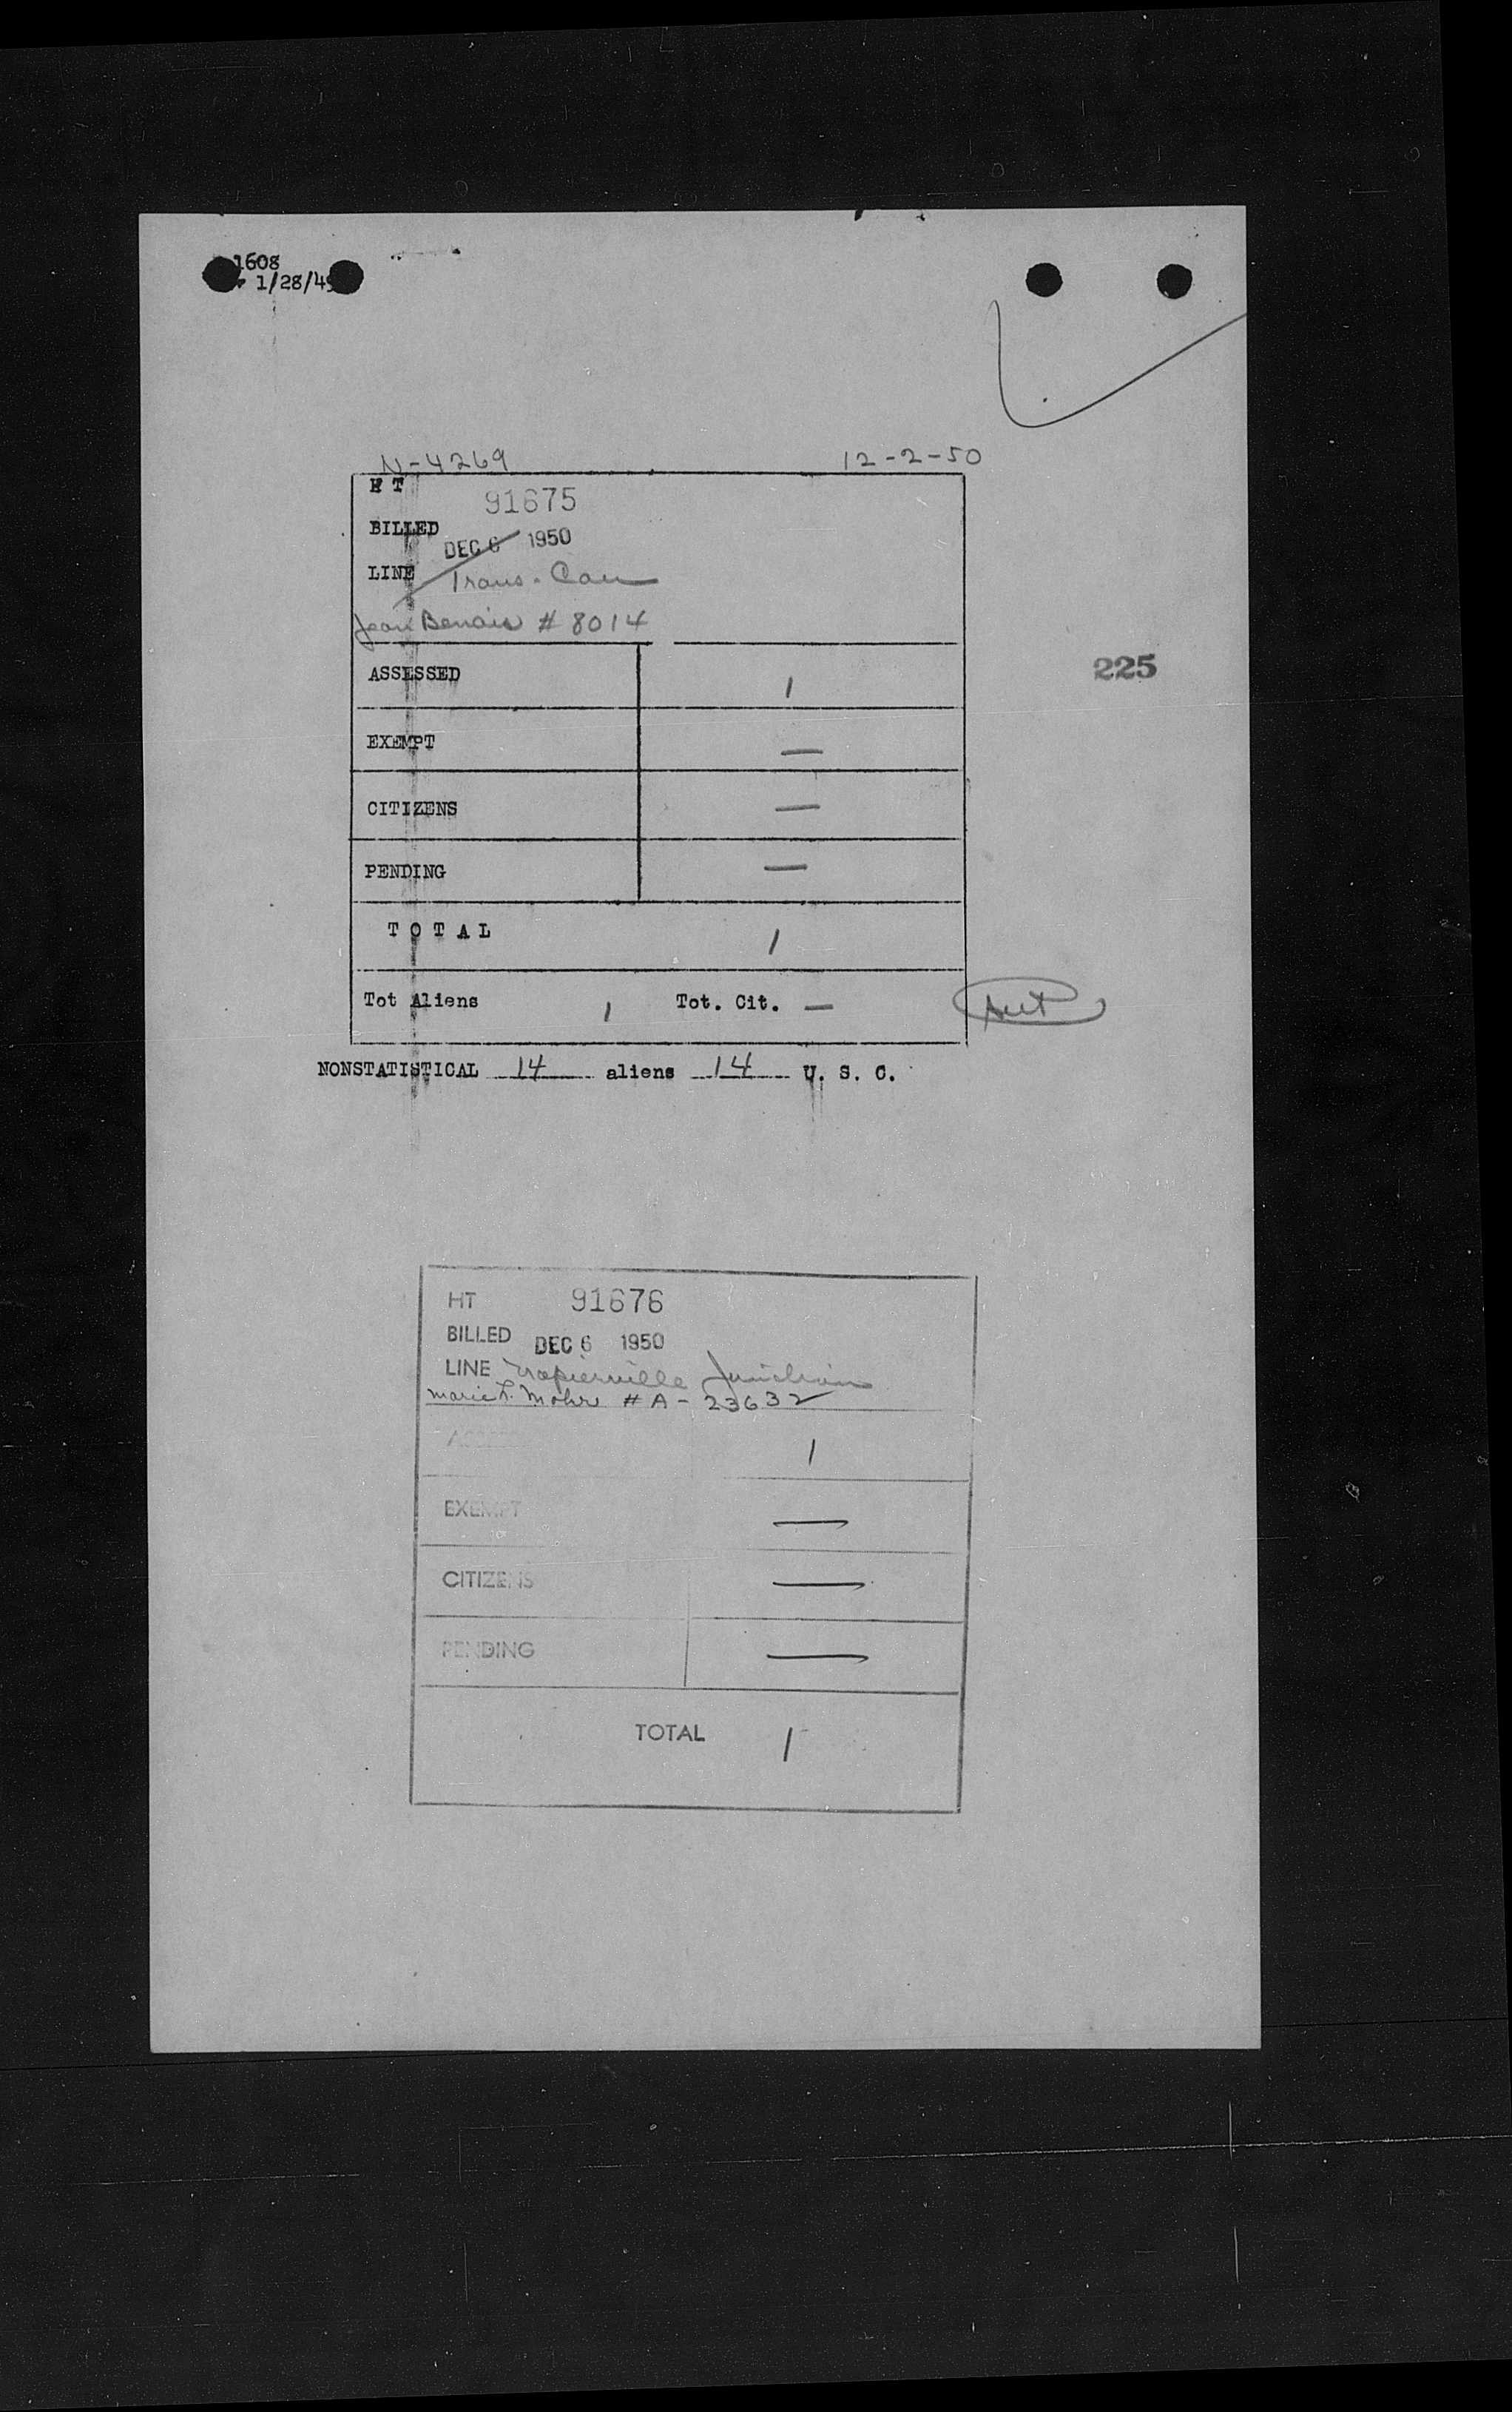 1608
1/28/49
N-4269 12-2-50
HT 91675
BILLED DEC 6 1950
LINE Trans-Can
Jean Benois # 8014
ASSESSED 1
225
EXEMPT —
CITIZENS —
PENDING —
TOTAL 1
Tot Aliens 1 Tot. Cit. —
NONSTATISTICAL 14 aliens 14 U. S. C.
HT 91676
BILLED DEC 6 1950
LINE Napierville Junction
Marie L. Mohr # A-23632
ASSESSED 1
EXEMPT —
CITIZENS —
PENDING —
TOTAL 1